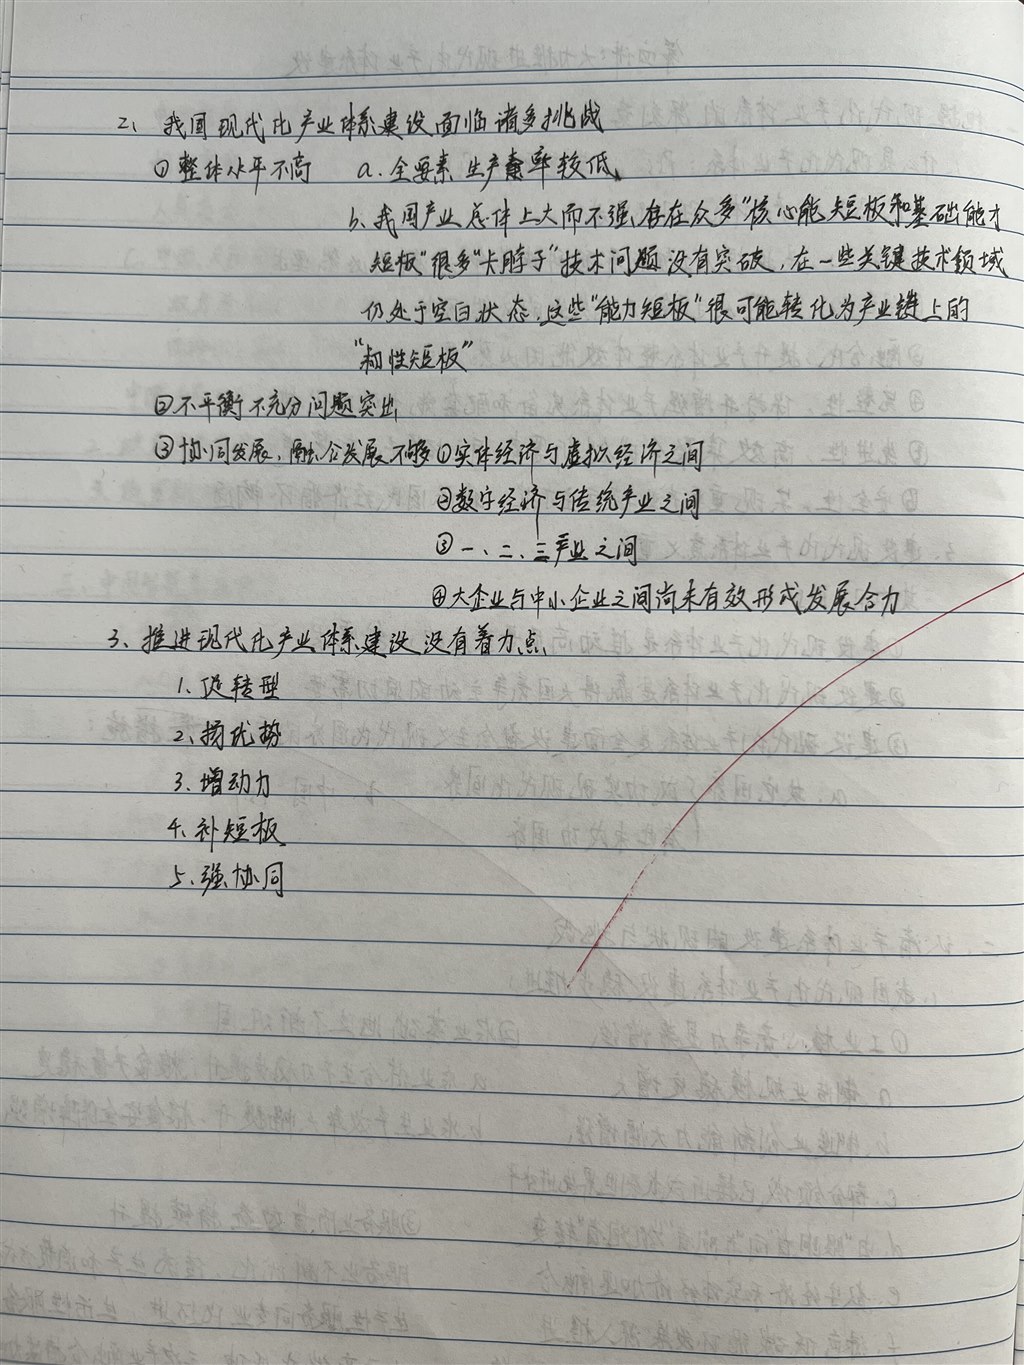 2、我国现代化产业体系建设面临诸多挑战
①整体水平不高 a.全要素生产率较低
b、我国产业总体上大而不强,存在众多“核心能短板和基础能才
短板”很多“卡脖子”技术问题没有突破,在一些关键技术领域
仍处于空白状态,这些“能力短板”很可能转化为产业链上的
“韧性短板”
②不平衡不充分问题突出
③协同发展,融合发展不够①实体经济与虚拟经济之间
②数字经济与传统产业之间
③一、二、三产业之间
④大企业与中小企业之间尚未有效形成发展合力
3、推进现代化产业体系建设没有着力点
1.促转型
2.扬优势
3.增动力
4.补短板
5.强协同